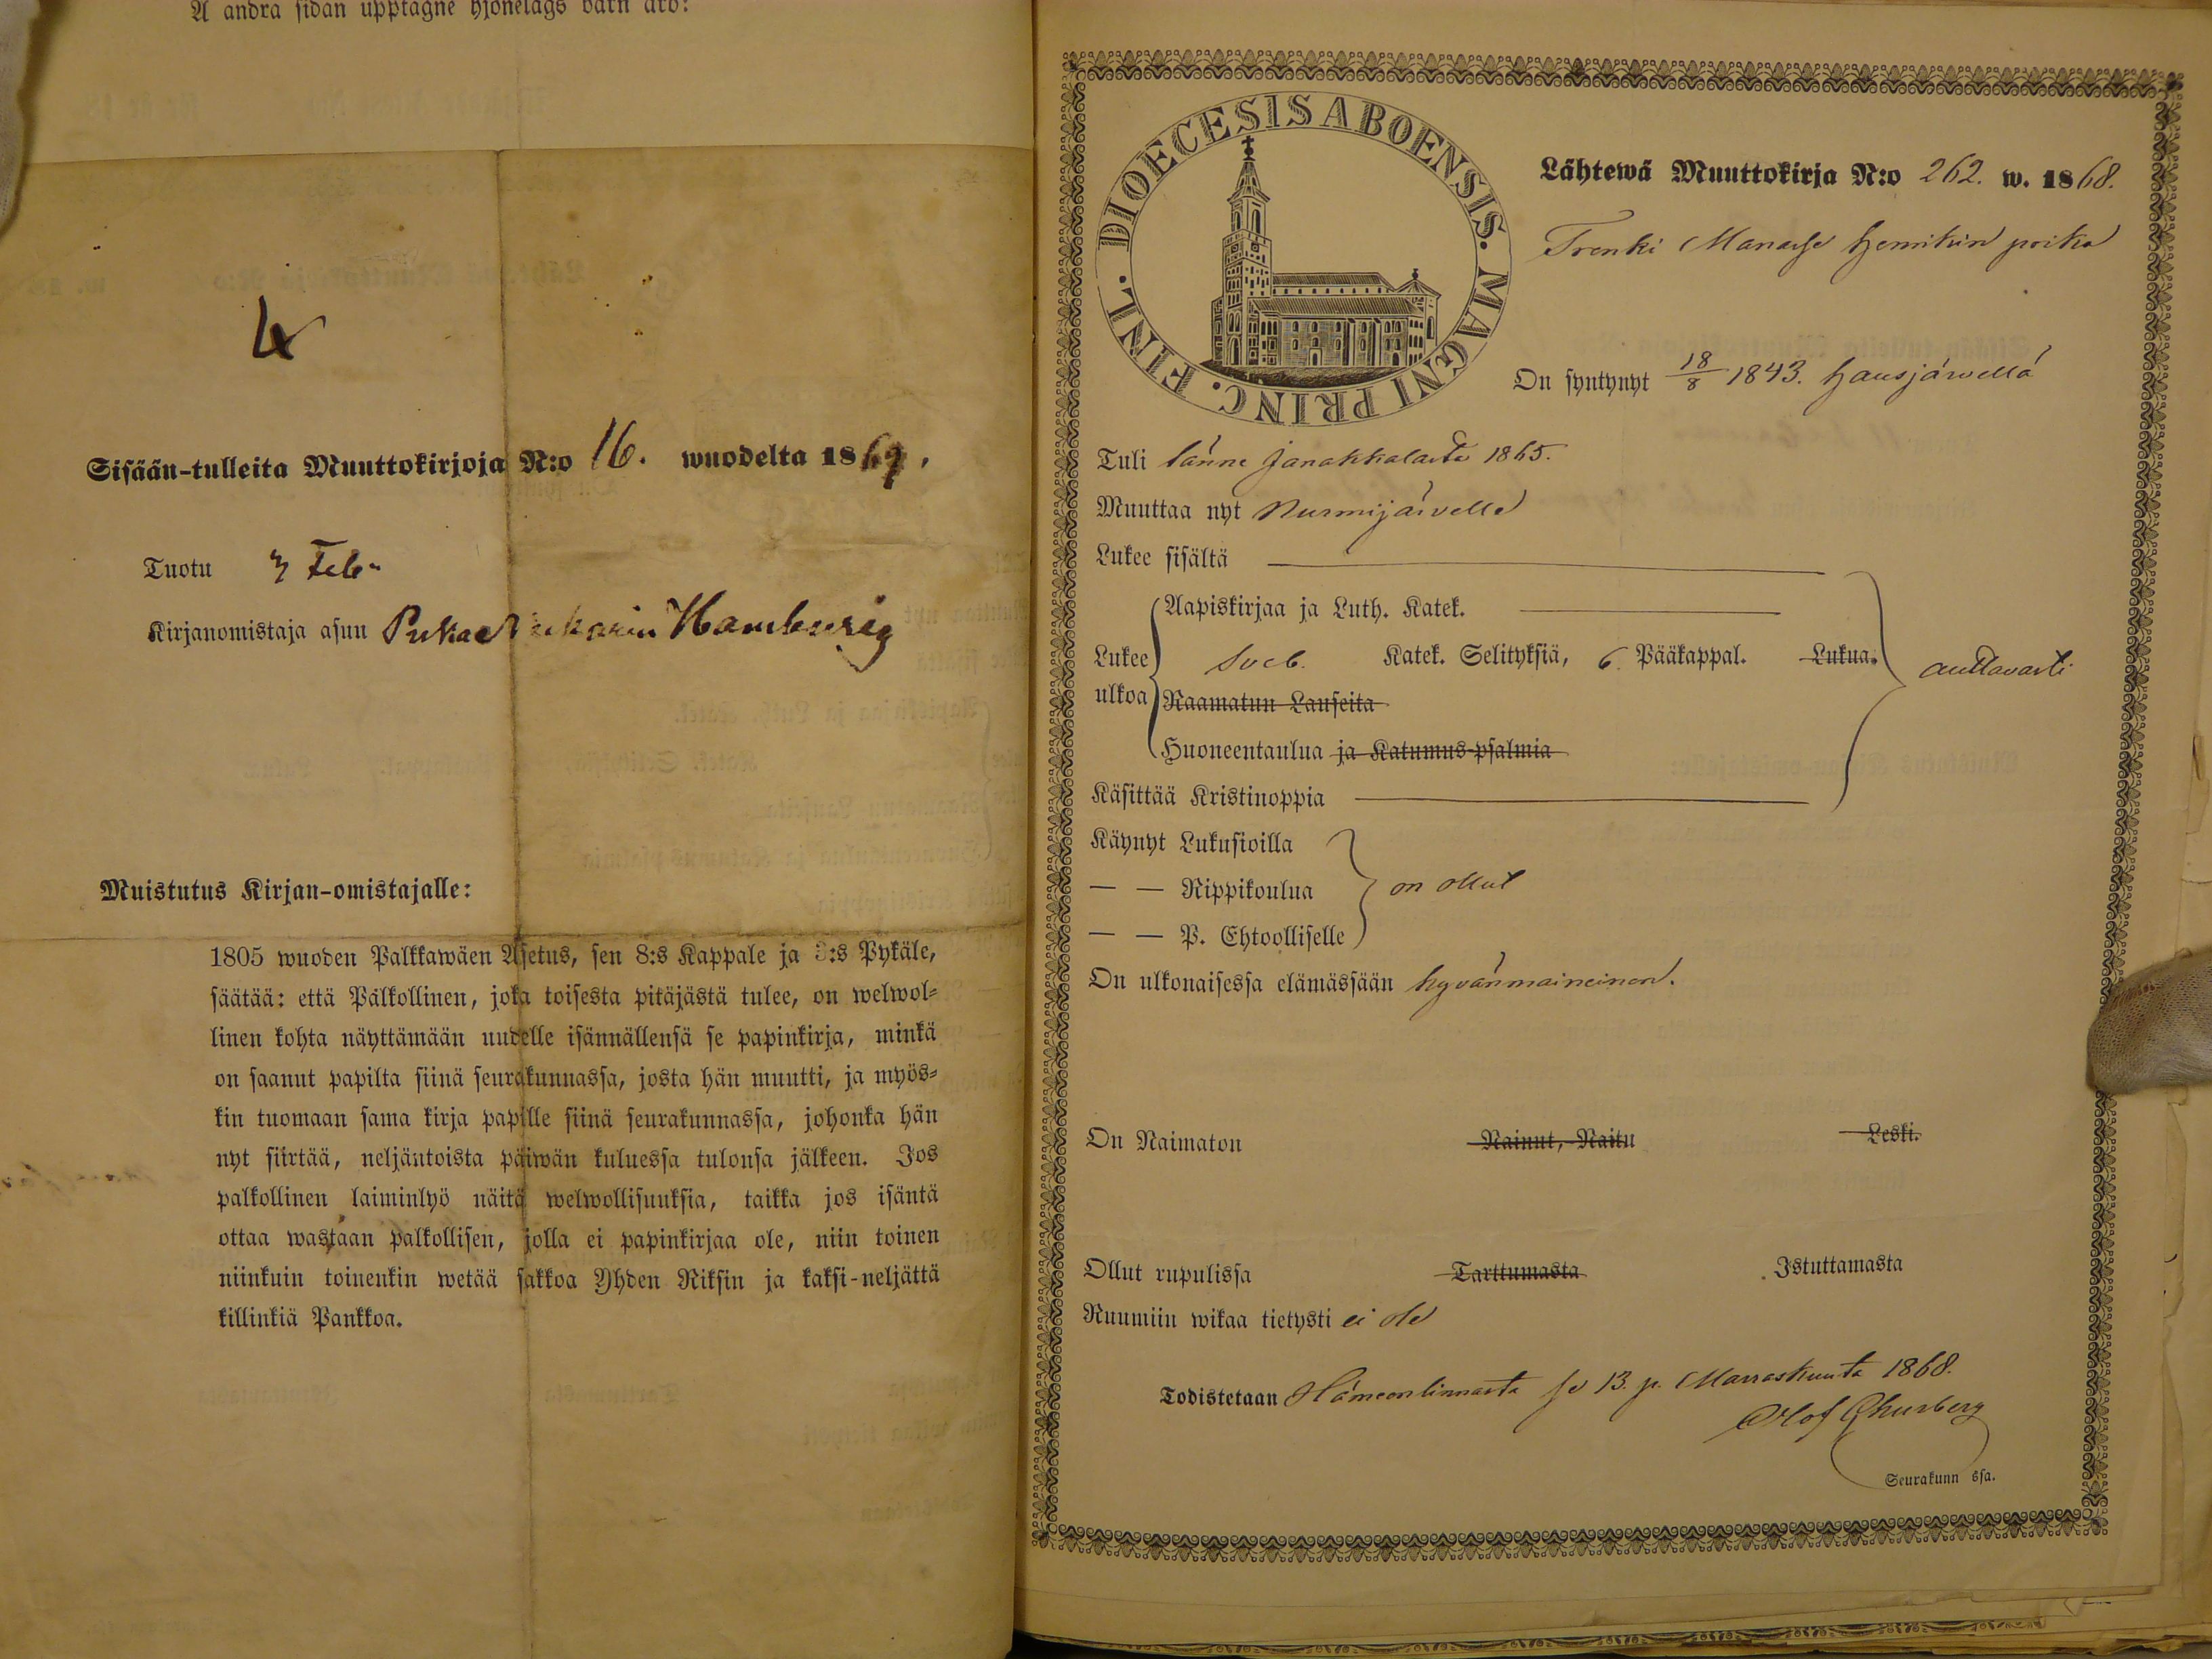 Å andra sidan upptagne hjonelags barn äro:
4
Sisään-tulleita Muuttokirjoja N:o 16. wuodelta 1869,
Tuotu 3 Feb.
Kirjanomistaja asuu Hamburig
Muistutus Kirjan-omistajalle:
1805 wuoden Palkkawäen Asetus, sen 8:s Kappale ja 3:s Pykäle,
säätää: että Palkollinen, joka toisesta pitäjästä tulee, on welwol=
linen kohta näyttämään uudelle isännällensä se papinkirja, minkä
on saanut papilta siinä seurakunnassa, josta hän muutti, ja myös=
kin tuomaan sama kirja papille siinä seurakunnassa, johonka hän
nyt siirtää, neljäntoista päiwän kuluessa tulonsa jälkeen. Jos
palkollinen laiminlyö näitä welwollisuuksia, taikka jos isäntä
ottaa wastaan palkollisen, jolla ei papinkirjaa ole, niin toinen
niinkuin toinenkin wetää sakkoa Yhden Riksin ja kaksi-neljättä
killinkiä Pankkoa.
FINL. DIOECESIS ABOENSIS. MAGNI PRINC.
Lähtewä Muuttokirja N:o 262. w. 1868.
Trenki Manasse Henrikin poika
On syntynyt 18/8 1843. Hausjärvellä
Tuli tänne Janakkalasta 1865.
Muuttaa nyt Nurmijärvelle
Lukee sisältä
Aapiskirjaa ja Luth. Katek.
Lukee ulkoa Sveb. Katek. Selityksiä, 6 Pääkappal. Lukua. auttavasti
Raamatun Lauseita
Huoneentaulua ja Katumus-psalmia
Käsittää Kristinoppia
Käynyt Lukusioilla
— — Rippikoulua on ollut
— — P. Ehtoolliselle
On ulkonaisessa elämässään hyvänmaineinen.
On Naimaton Nainut, Naitu Leski.
Ollut rupulissa Tarttumasta Istuttamasta
Ruumiin wikaa tietysti ei ole
Todistetaan Hämeenlinnasta se 13. p. Marraskuuta 1868.
Olof Churberg
Seurakunn ssa.